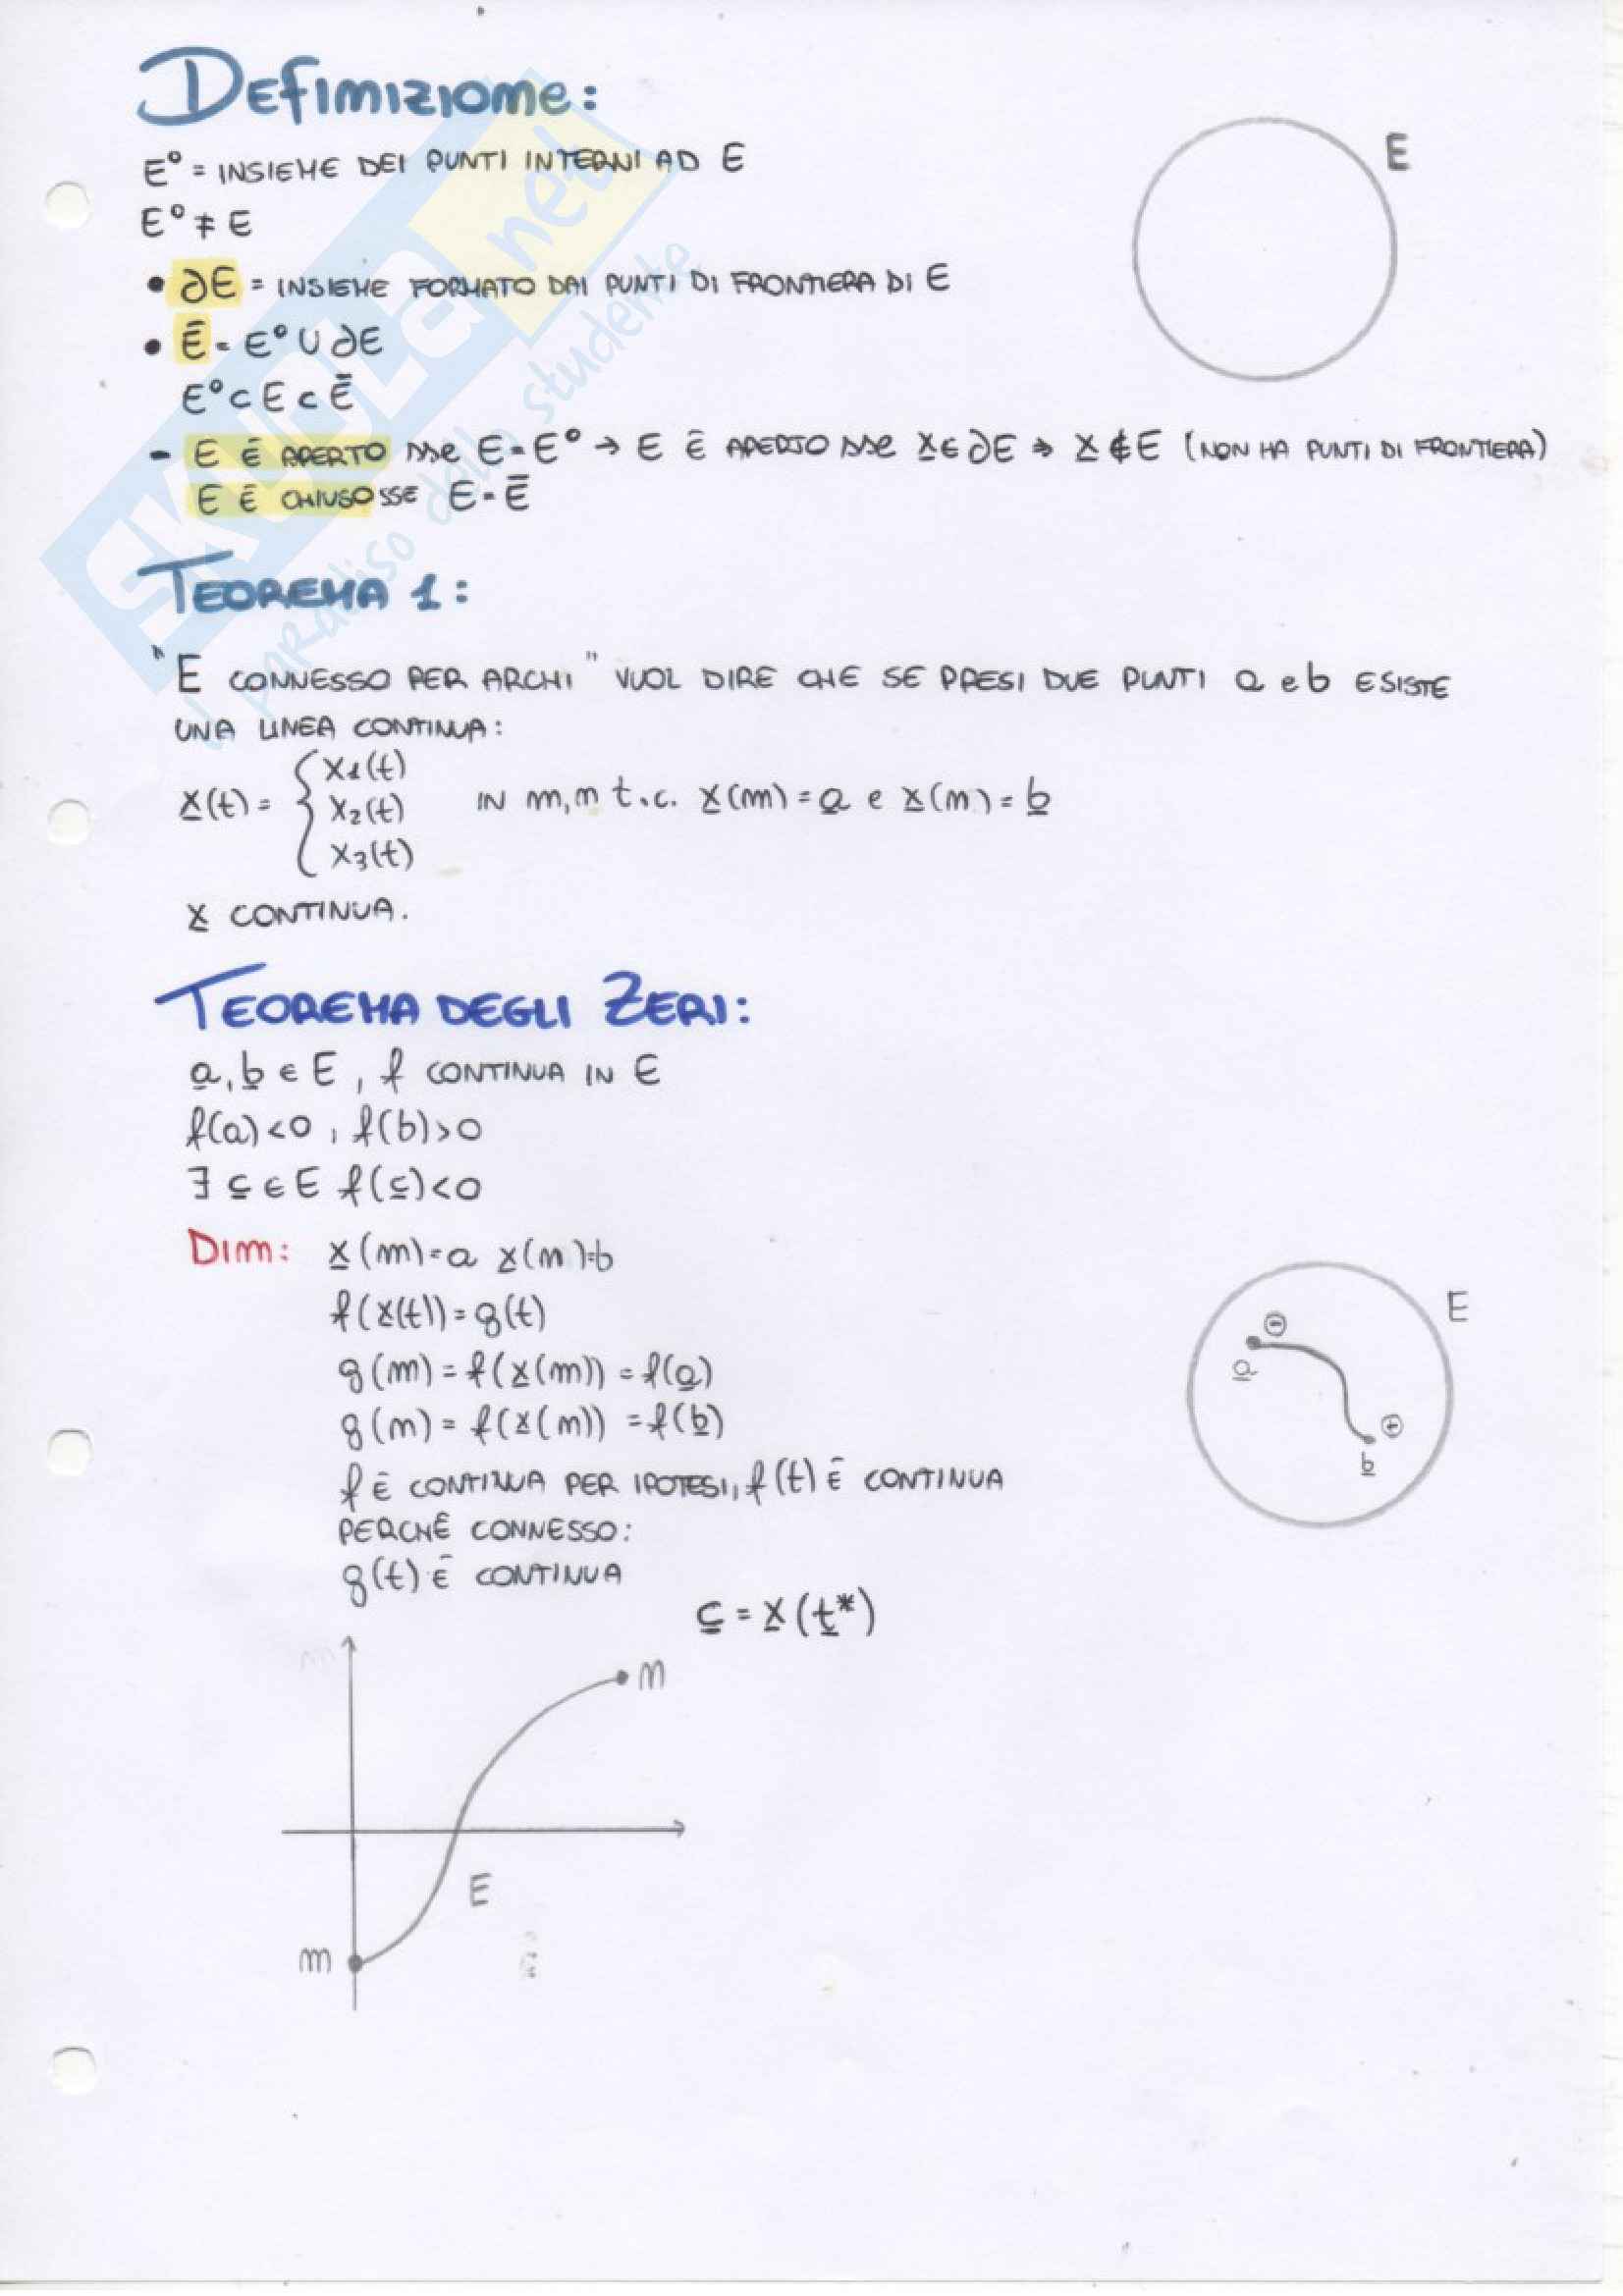 Definizione:
E
E° = INSIEME DEI PUNTI INTERNI AD E
E° ≠ E
• ∂E = INSIEME FORMATO DAI PUNTI DI FRONTIERA DI E
• Ē = E° ∪ ∂E
E° ⊂ E ⊂ Ē
- E È APERTO sse E = E° → E È APERTO sse x̲ ∈ ∂E ⇒ x̲ ∉ E (NON HA PUNTI DI FRONTIERA)
E È CHIUSO SSE E = Ē
SKUOLA.net
il paradiso dello studente
TEOREMA 1:
"E CONNESSO PER ARCHI" VUOL DIRE CHE SE PRESI DUE PUNTI a e b ESISTE
UNA LINEA CONTINUA:
x̲(t) = { x1(t)
x2(t)
x3(t)
IN m,n t.c. x̲(m) = a̲ e x̲(n) = b̲
x̲ CONTINUA.
TEOREMA DEGLI ZERI:
a̲, b̲ ∈ E, f CONTINUA IN E
f(a) < 0, f(b) > 0
∃ c̲ ∈ E f(c̲) < 0
Dim: x̲(m) = a x̲(n) = b
f(x̲(t)) = g(t)
g(m) = f(x̲(m)) = f(a̲)
g(n) = f(x̲(n)) = f(b̲)
f È CONTINUA PER IPOTESI, f(t) È CONTINUA
PERCHÉ CONNESSO:
g(t) È CONTINUA
E
⊖
a̲
⊕
b̲
c̲ = x̲(t̲*)
n
E
m